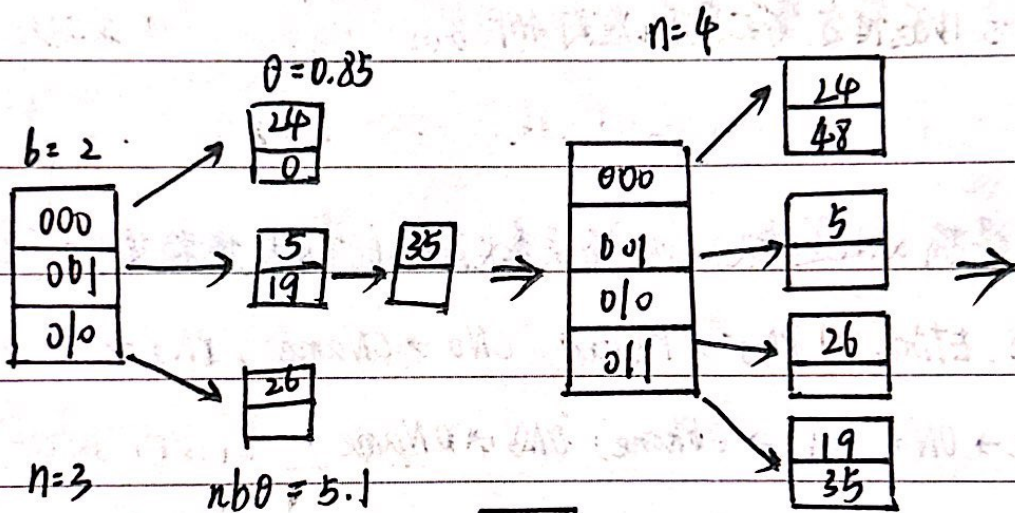 n=4
θ=0.85
b=2
24
0
000
001
010
5
19
35
26
n=3
nbθ=5.1
000
001
010
011
24
48
5
26
19
35